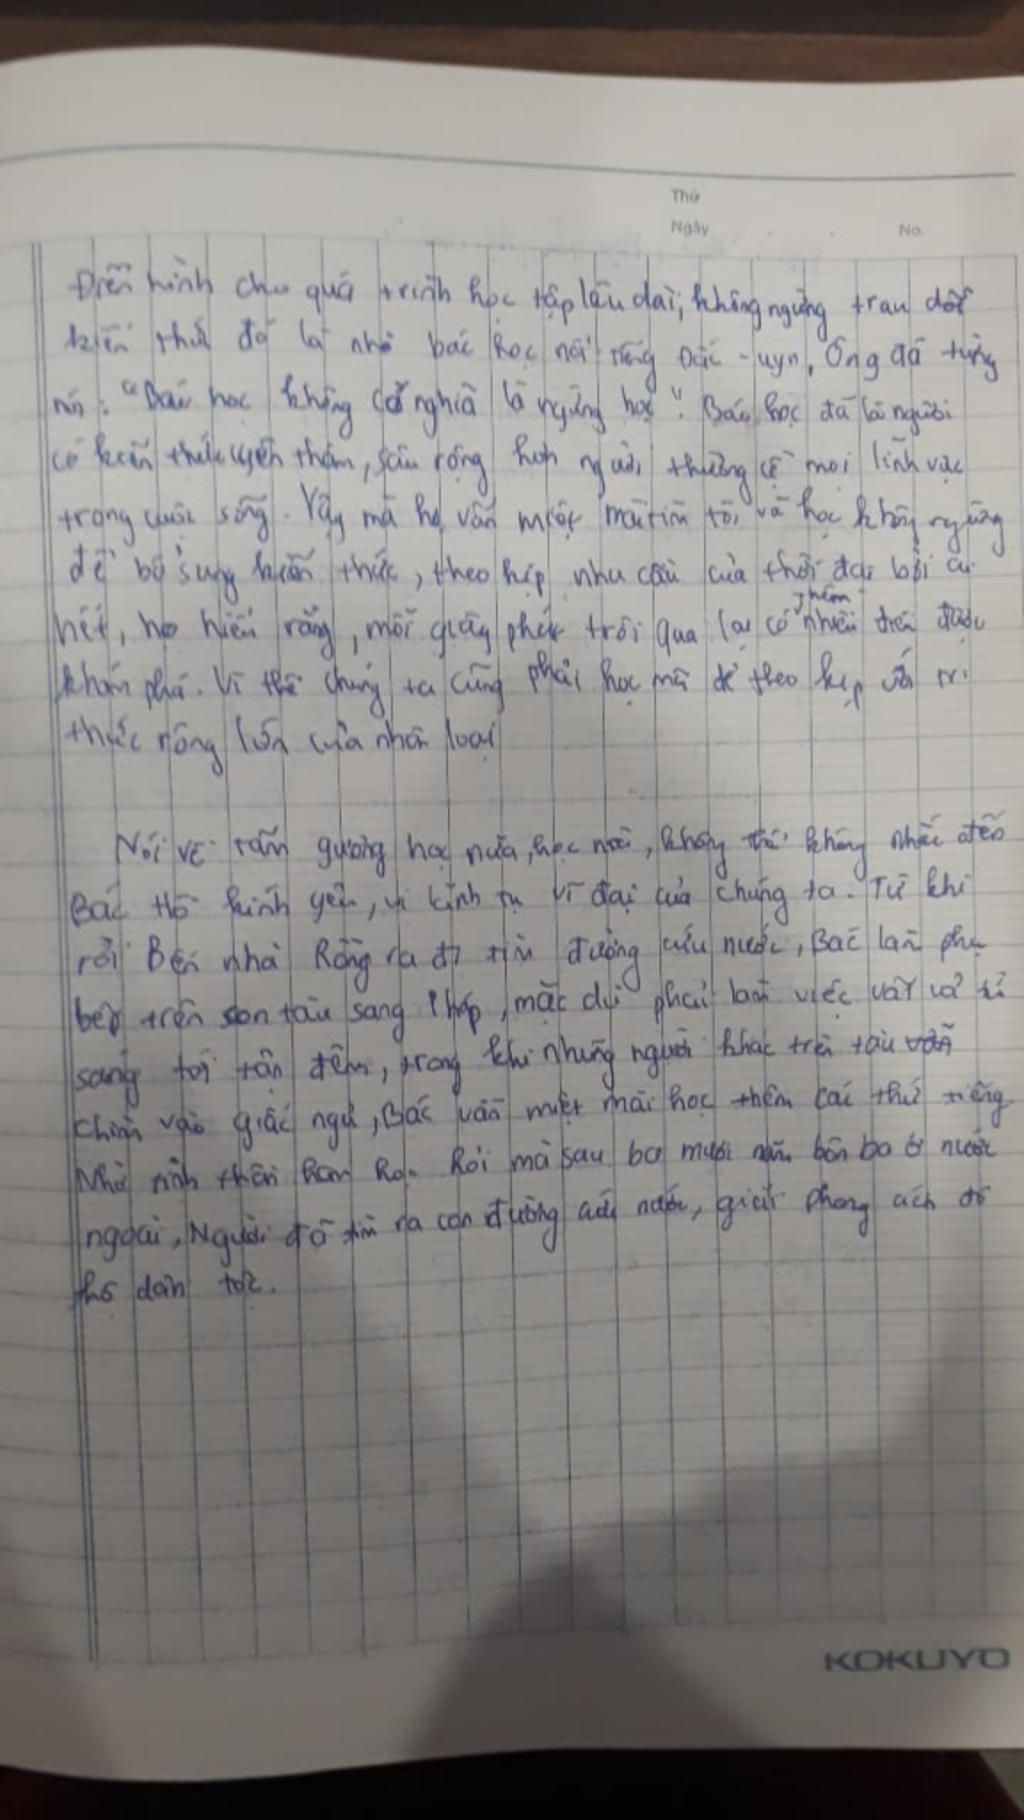 Thứ
Ngày No.
Điển hình cho quá trình học tập lâu dài, không ngừng trau dồi
kiến thức đó là nhà bác học nổi tiếng Đác-uyn, Ông đã từng
nói: "Bác học không có nghĩa là ngừng học". Bác học đã là người
có kiến thức uyên thâm, sâu rộng hơn người thường về mọi lĩnh vực
trong cuộc sống. Vậy mà họ vẫn miệt mài tìm tòi và học không ngừng
để bổ sung kiến thức, theo kịp nhu cầu của thời đại bởi
hết, họ hiểu rằng, mỗi giây phút trôi qua lại có thêm nhiều điều được
khám phá. Vì thế chúng ta cũng phải học mãi để theo kịp với tri
thức rộng lớn của nhân loại
Nói về tấm gương học nữa, học mãi, không thể không nhắc đến
Bác Hồ kính yêu, vị lãnh tụ vĩ đại của chúng ta. Từ khi
rời Bến nhà Rồng ra đi tìm đường cứu nước, Bác làm phụ
bếp trên con tàu sang Pháp, mặc dù phải làm việc vất vả từ
sáng tới tận đêm, trong khi những người khác trên tàu
chìm vào giấc ngủ, Bác vẫn miệt mài học thêm các thứ tiếng.
Nhờ tinh thần ham học hỏi mà sau ba mươi năm bôn ba ở nước
ngoài, Người đã tìm ra con đường cứu nước, giải phóng ách đô
hộ dân tộc.
KOKUYO